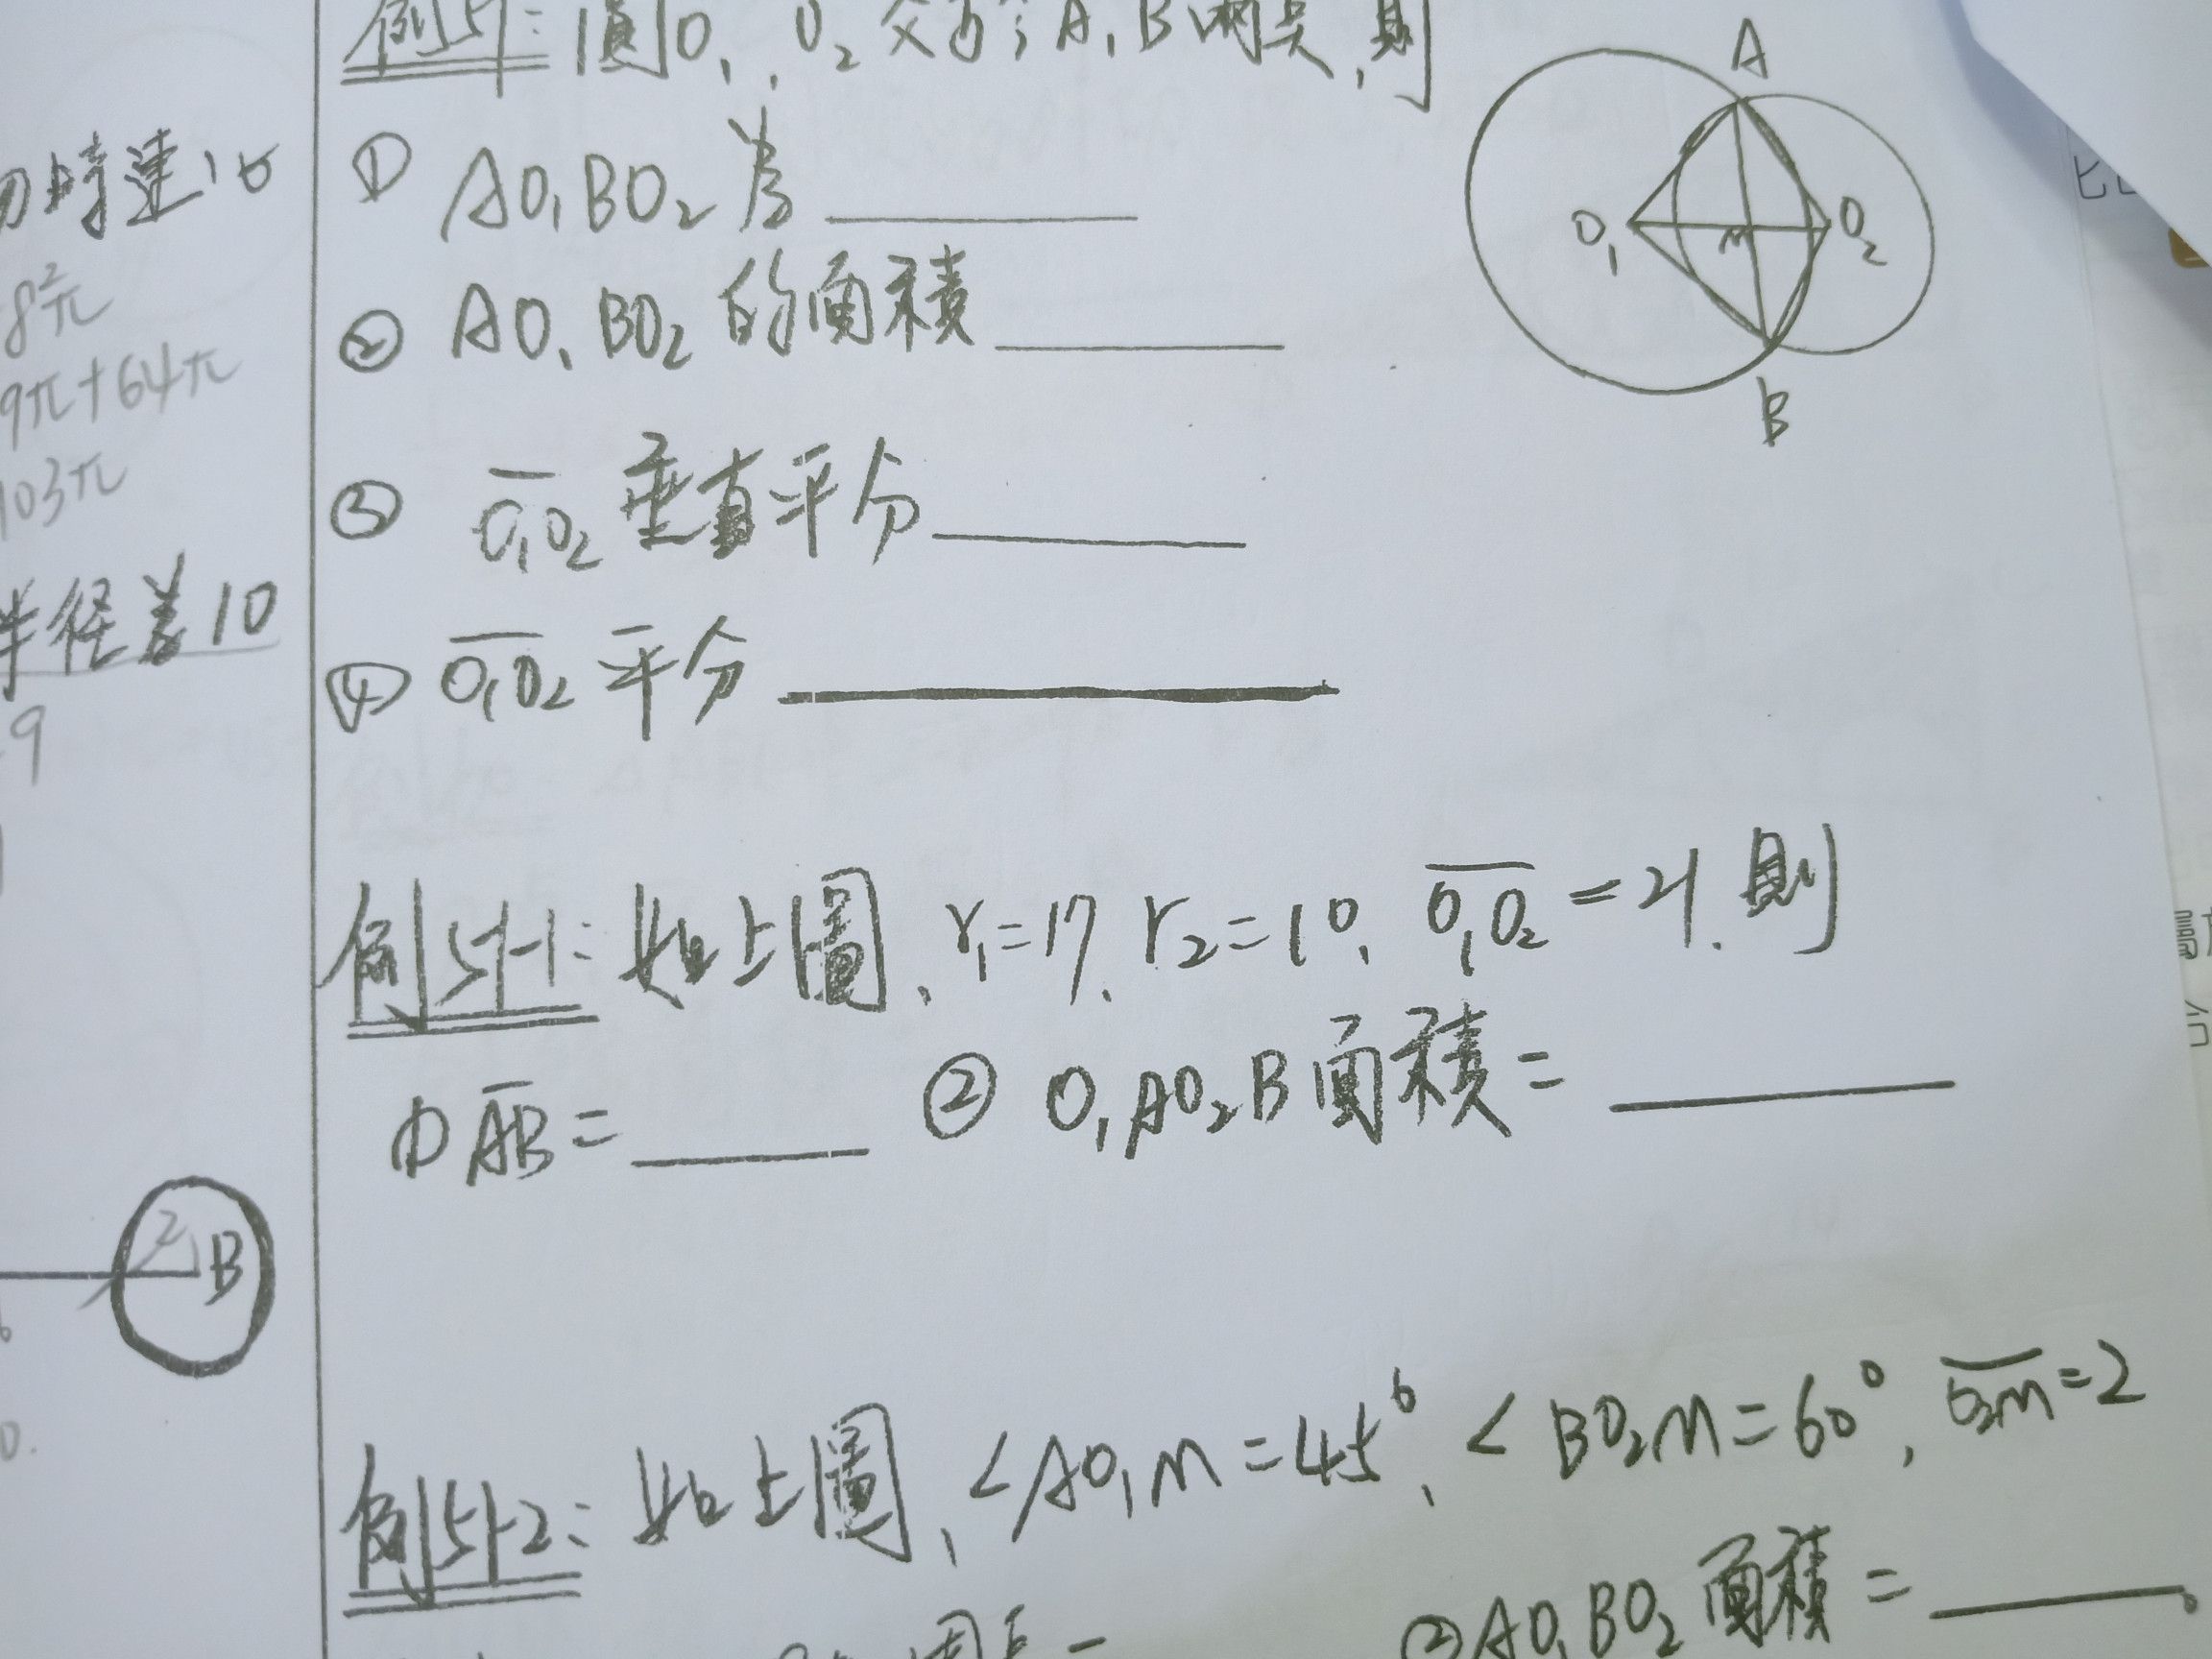 例51:圓O₁, O₂交於A,B兩點,則
① AO₁BO₂為
② AO₁BO₂的面積
③ O₁O₂垂直平分
④ O₁O₂平分
例51-1:如上圖, r₁=17, r₂=10, O₁O₂=21.則
① AB= ② O₁AO₂B面積=
例51-2:如上圖, <AO₁M=45°, <BO₂M=60°, O₂M=2
②AO₁BO₂面積= 。
A
O₁
M
O₂
B
時速15
8²π
9π+64π
103π
半徑差10
9
2
B